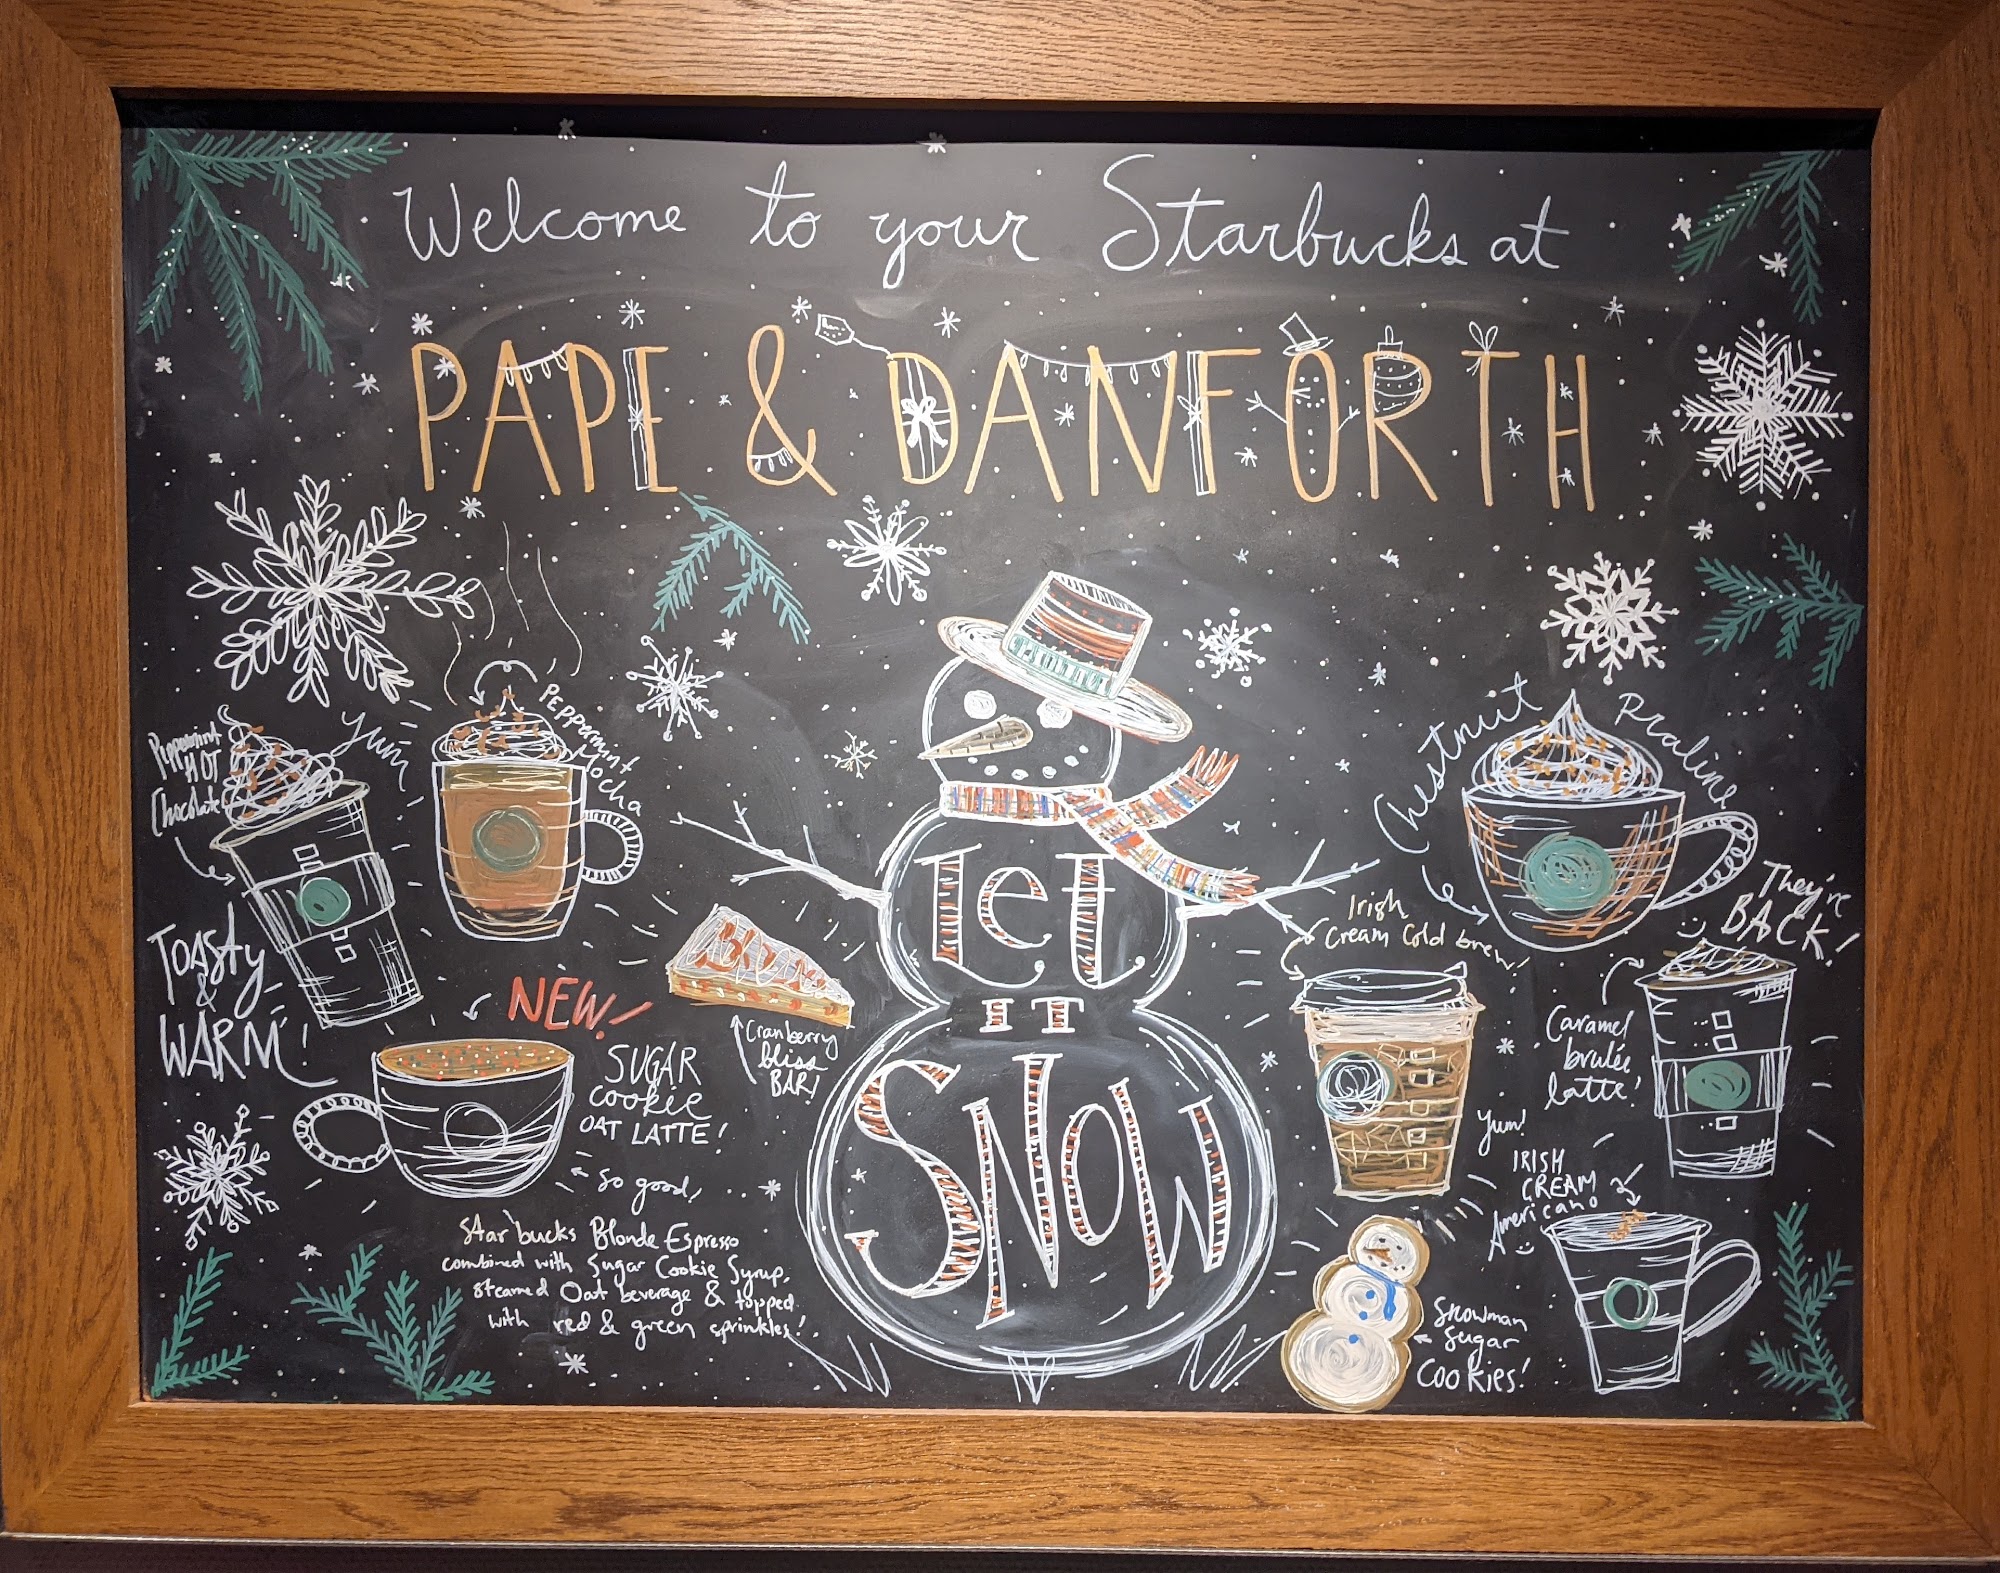 Welcome to your Starbucks at
PAPE & DANFORTH
Peppermint
HOT
Chocolate
Yum
PEPPERMINT
Mocha
TOASTY
&
WARM!
NEW!
SUGAR
COOKIE
OAT LATTE!
so good!
Starbucks Blonde Espresso
combined with Sugar Cookie Syrup,
steamed Oat beverage & topped
with red & green sprinkles!
Cranberry
bliss
BAR!
Let
IT
SNOW
Chestnut Praline
They're
BACK!
Irish
Cream Cold brew!
Caramel
brulée
latte!
Yum!
IRISH
CREAM
Americano
Snowman
Sugar
COOKIES!